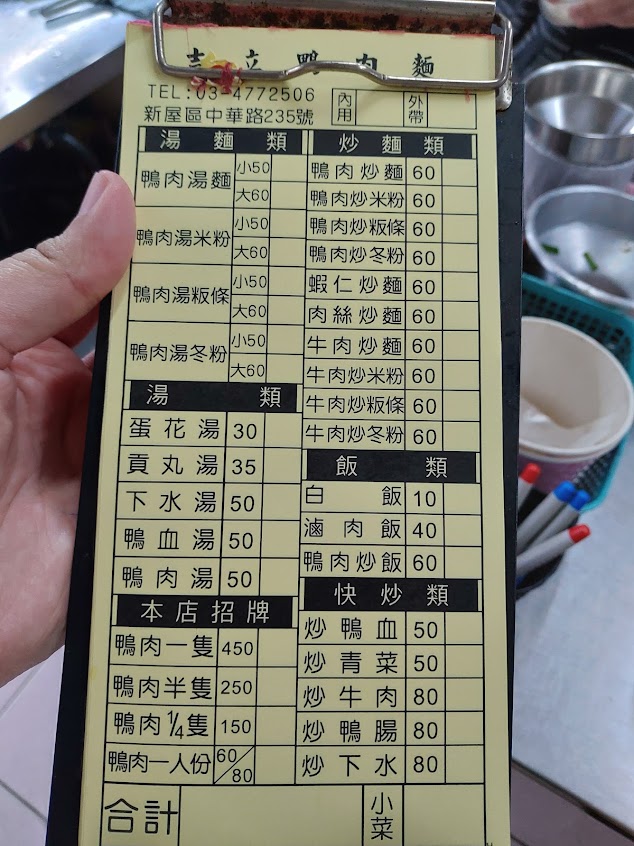 吉立鴨肉麵
TEL:03-4772506
新屋區中華路235號
內用
外帶
湯麵類
鴨肉湯麵 小50 大60
鴨肉湯米粉 小50 大60
鴨肉湯粄條 小50 大60
鴨肉湯冬粉 小50 大60
湯類
蛋花湯 30
貢丸湯 35
下水湯 50
鴨血湯 50
鴨肉湯 50
本店招牌
鴨肉一隻 450
鴨肉半隻 250
鴨肉1/4隻 150
鴨肉一人份 60/80
炒麵類
鴨肉炒麵 60
鴨肉炒米粉 60
鴨肉炒粄條 60
鴨肉炒冬粉 60
蝦仁炒麵 60
肉絲炒麵 60
牛肉炒麵 60
牛肉炒米粉 60
牛肉炒粄條 60
牛肉炒冬粉 60
飯類
白飯 10
滷肉飯 40
鴨肉炒飯 60
快炒類
炒鴨血 50
炒青菜 50
炒牛肉 80
炒鴨腸 80
炒下水 80
合計
小菜